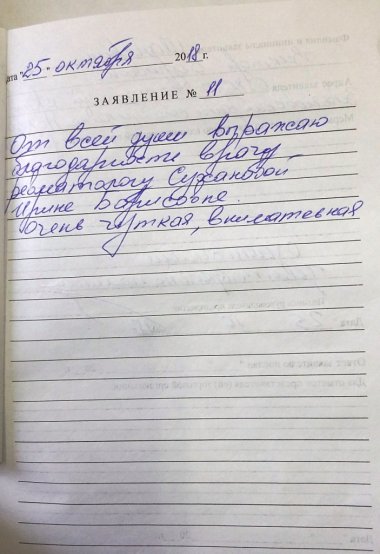 Дата "25" октября 2018 г.
ЗАЯВЛЕНИЕ № 11
От всей души выражаю
благодарности врачу
ревматологу Сухановой
Ирине Борисовне.
Очень чуткая, внимательная